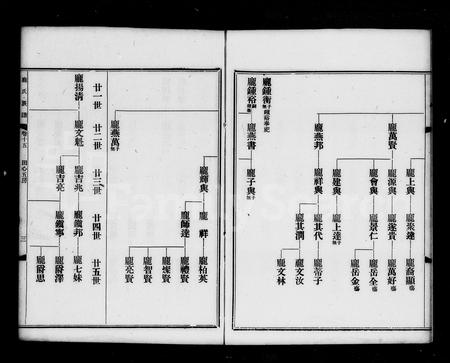 龐鍾衡無子鍾裕奉祀
龐鍾裕
龐燕書
龐子與無子
龐萬賢
龐燕邦
龐上與
龐源與
龐會與
龐建與
龐祥與
龐業達
龐遂貴
龐景仁
龐上達無子
龐其代
龐其潤
龐裔顯
龐萬好
龐岳全
龐岳金
龐蒂子
龐文汝
龐文林
龐氏族譜
卷十五
田心五房
廿一世
廿二世
廿三世
廿四世
廿五世
龐揚清
龐燕萬無子
龐文魁
龐輝與
龐吉兆
龐吉亮
龐祥
龐師達
龐鐵邦
龐鐵寧
龐柏英
龐禮賢
龐燦賢
龐智賢
龐亮賢
龐七妹
龐爵澤
龐爵思